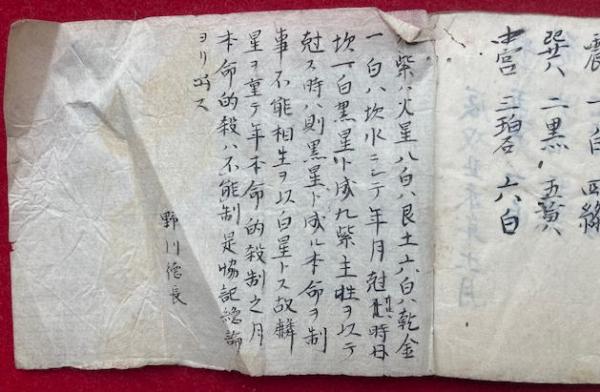 震 一白 四緑
巽 二黒 五黄
中宮 三碧 六白
紫ハ火星八白ハ艮土六白ハ乾金
一白ハ坎水ニシテ年月尅時日
坎一白黒星ト成九紫主牲ヲ以テ
尅ス時ハ則黒星ト成ル本命ヲ制
事不能相生ヲ以白星トス故麟
星ヲ重テ年本命的殺制之月
本命的殺ハ不能制是協記總論
ヨリ出ス
野川徳長